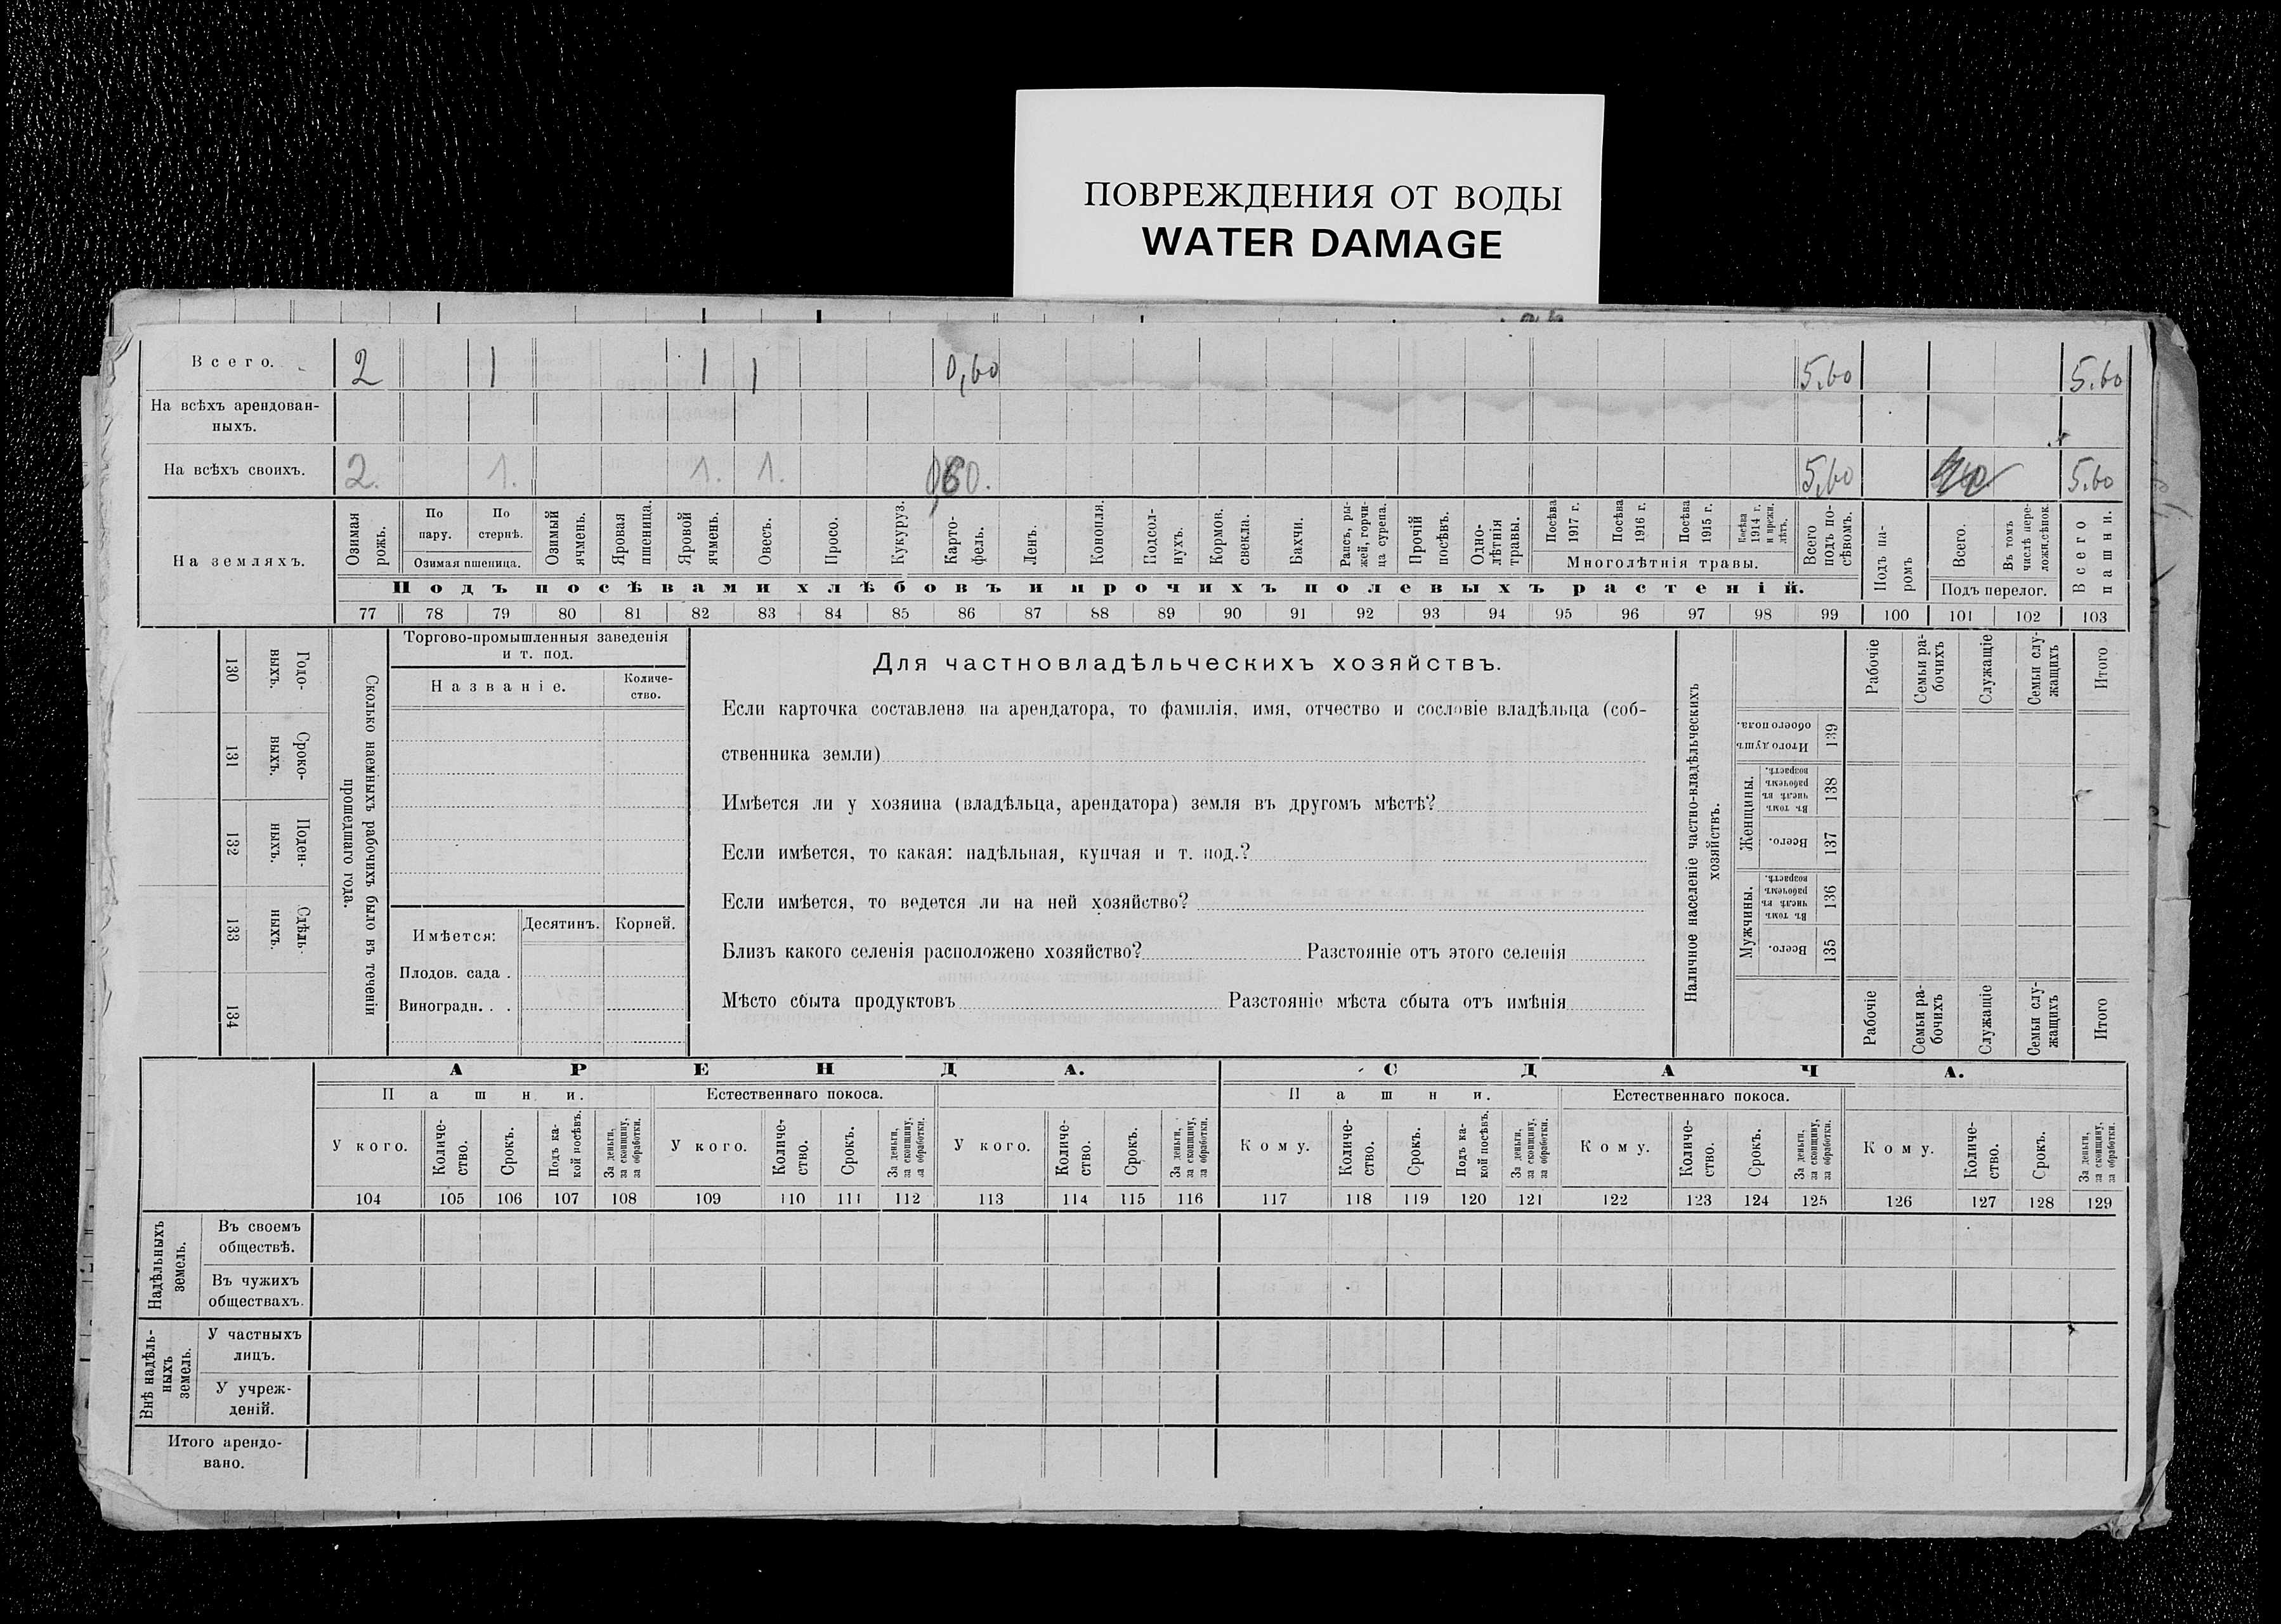 ПОВРЕЖДЕНИЯ ОТ ВОДЫ
WATER DAMAGE
Всего. 2 1 1 1 0,60 5.60 5.60
На всѣхъ арендован-
ныхъ.
На всѣхъ своихъ. 2. 1. 1. 1. 5,60 5.60
На земляхъ.
Озимая рожь.
По пару.
По стернѣ.
Озимая пшеница.
Озимый ячмень.
Яровая пшеница.
Яровой ячмень.
Овесъ.
Просо.
Кукуруз.
Карто-
фель.
Ленъ.
Конопля.
Подсол-
нухъ.
Кормов. свекла.
Бахчи.
Рапсъ, ры-
жей, горчи-
ца сурепа.
Прочій посѣвъ.
Одно-
лѣтнія травы.
Посѣва 1917 г.
Посѣва 1916 г.
Посѣва 1915 г.
Посѣва 1914 г. и прежн. лѣтъ.
Многолѣтнія травы.
Всего подъ по-
сѣвомъ.
Подъ па-
ромъ
Всего.
Въ томъ числѣ пере-
ложн.сѣнок.
Подъ перелог.
Всего пашни.
Подъ посѣвами хлѣбовъ и прочихъ полевыхъ растеній.
77 78 79 80 81 82 83 84 85 86 87 88 89 90 91 92 93 94 95 96 97 98 99 100 101 102 103
130 Годо-
выхъ.
131 Сроко-
ныхъ.
132 Поден-
ныхъ.
133 Сдѣль-
ныхъ.
134
Сколько наемныхъ рабочихъ было въ теченіи
прошедшаго года.
Торгово-промышленныя заведенія
и т. под.
Названіе.
Количе-
ство.
Имѣется: Десятинъ. Корней.
Плодов. сада .
Виноградн. . .
Для частновладѣльческихъ хозяйствъ.
Если карточка составлена на арендатора, то фамилія, имя, отчество и сословіе владѣльца (соб-
ственника земли)
Имѣется ли у хозяина (владѣльца, арендатора) земля въ другомъ мѣстѣ?
Если имѣется, то какая: надѣльная, купчая и т. под.?
Если имѣется, то ведется ли на ней хозяйство?
Близъ какого селенія расположено хозяйство? Разстояніе отъ этого селенія
Мѣсто сбыта продуктовъ Разстояніе мѣста сбыта отъ имѣнія
Наличное населеніе частно-владѣльческихъ
хозяйствъ.
Рабочіе
Семьи ра-
бочихъ
Служащіе
Семьи слу-
жащихъ
Итого
Итого душъ обоего пола. 139
Женщины.
Въ томъ числѣ въ рабочемъ возрастѣ. 138
Всего. 137
Мужчины.
Въ томъ числѣ въ рабочемъ возрастѣ. 136
Всего. 135
Рабочіе
Семьи ра-
бочихъ
Служащіе
Семьи слу-
жащихъ
Итого
АРЕНДА. СДАЧА.
Пашни. Естественнаго покоса. Пашни. Естественнаго покоса.
У кого.
Количе-
ство.
Срокъ.
Подъ ка-
кой посѣвъ.
За деньги,
за скопщину,
за обработки.
У кого.
Количе-
ство.
Срокъ.
За деньги,
за скопщину,
за обработки.
У кого.
Количе-
ство.
Срокъ.
За деньги,
за скопщину,
за обработки.
Кому.
Количе-
ство.
Срокъ.
Подъ ка-
кой посѣвъ.
За деньги,
за скопщину,
за обработки.
Кому.
Количе-
ство.
Срокъ.
За деньги,
за скопщину,
за обработки.
Кому.
Количе-
ство.
Срокъ.
За деньги,
за скопщину,
за обработки.
104 105 106 107 108 109 110 111 112 113 114 115 116 117 118 119 120 121 122 123 124 125 126 127 128 129
Надѣльныхъ
земель.
Въ своемъ
обществѣ.
Въ чужихъ
обществахъ.
Внѣ надѣль-
ныхъ
земель.
У частныхъ
лицъ.
У учреж-
деній.
Итого арендо-
вано.